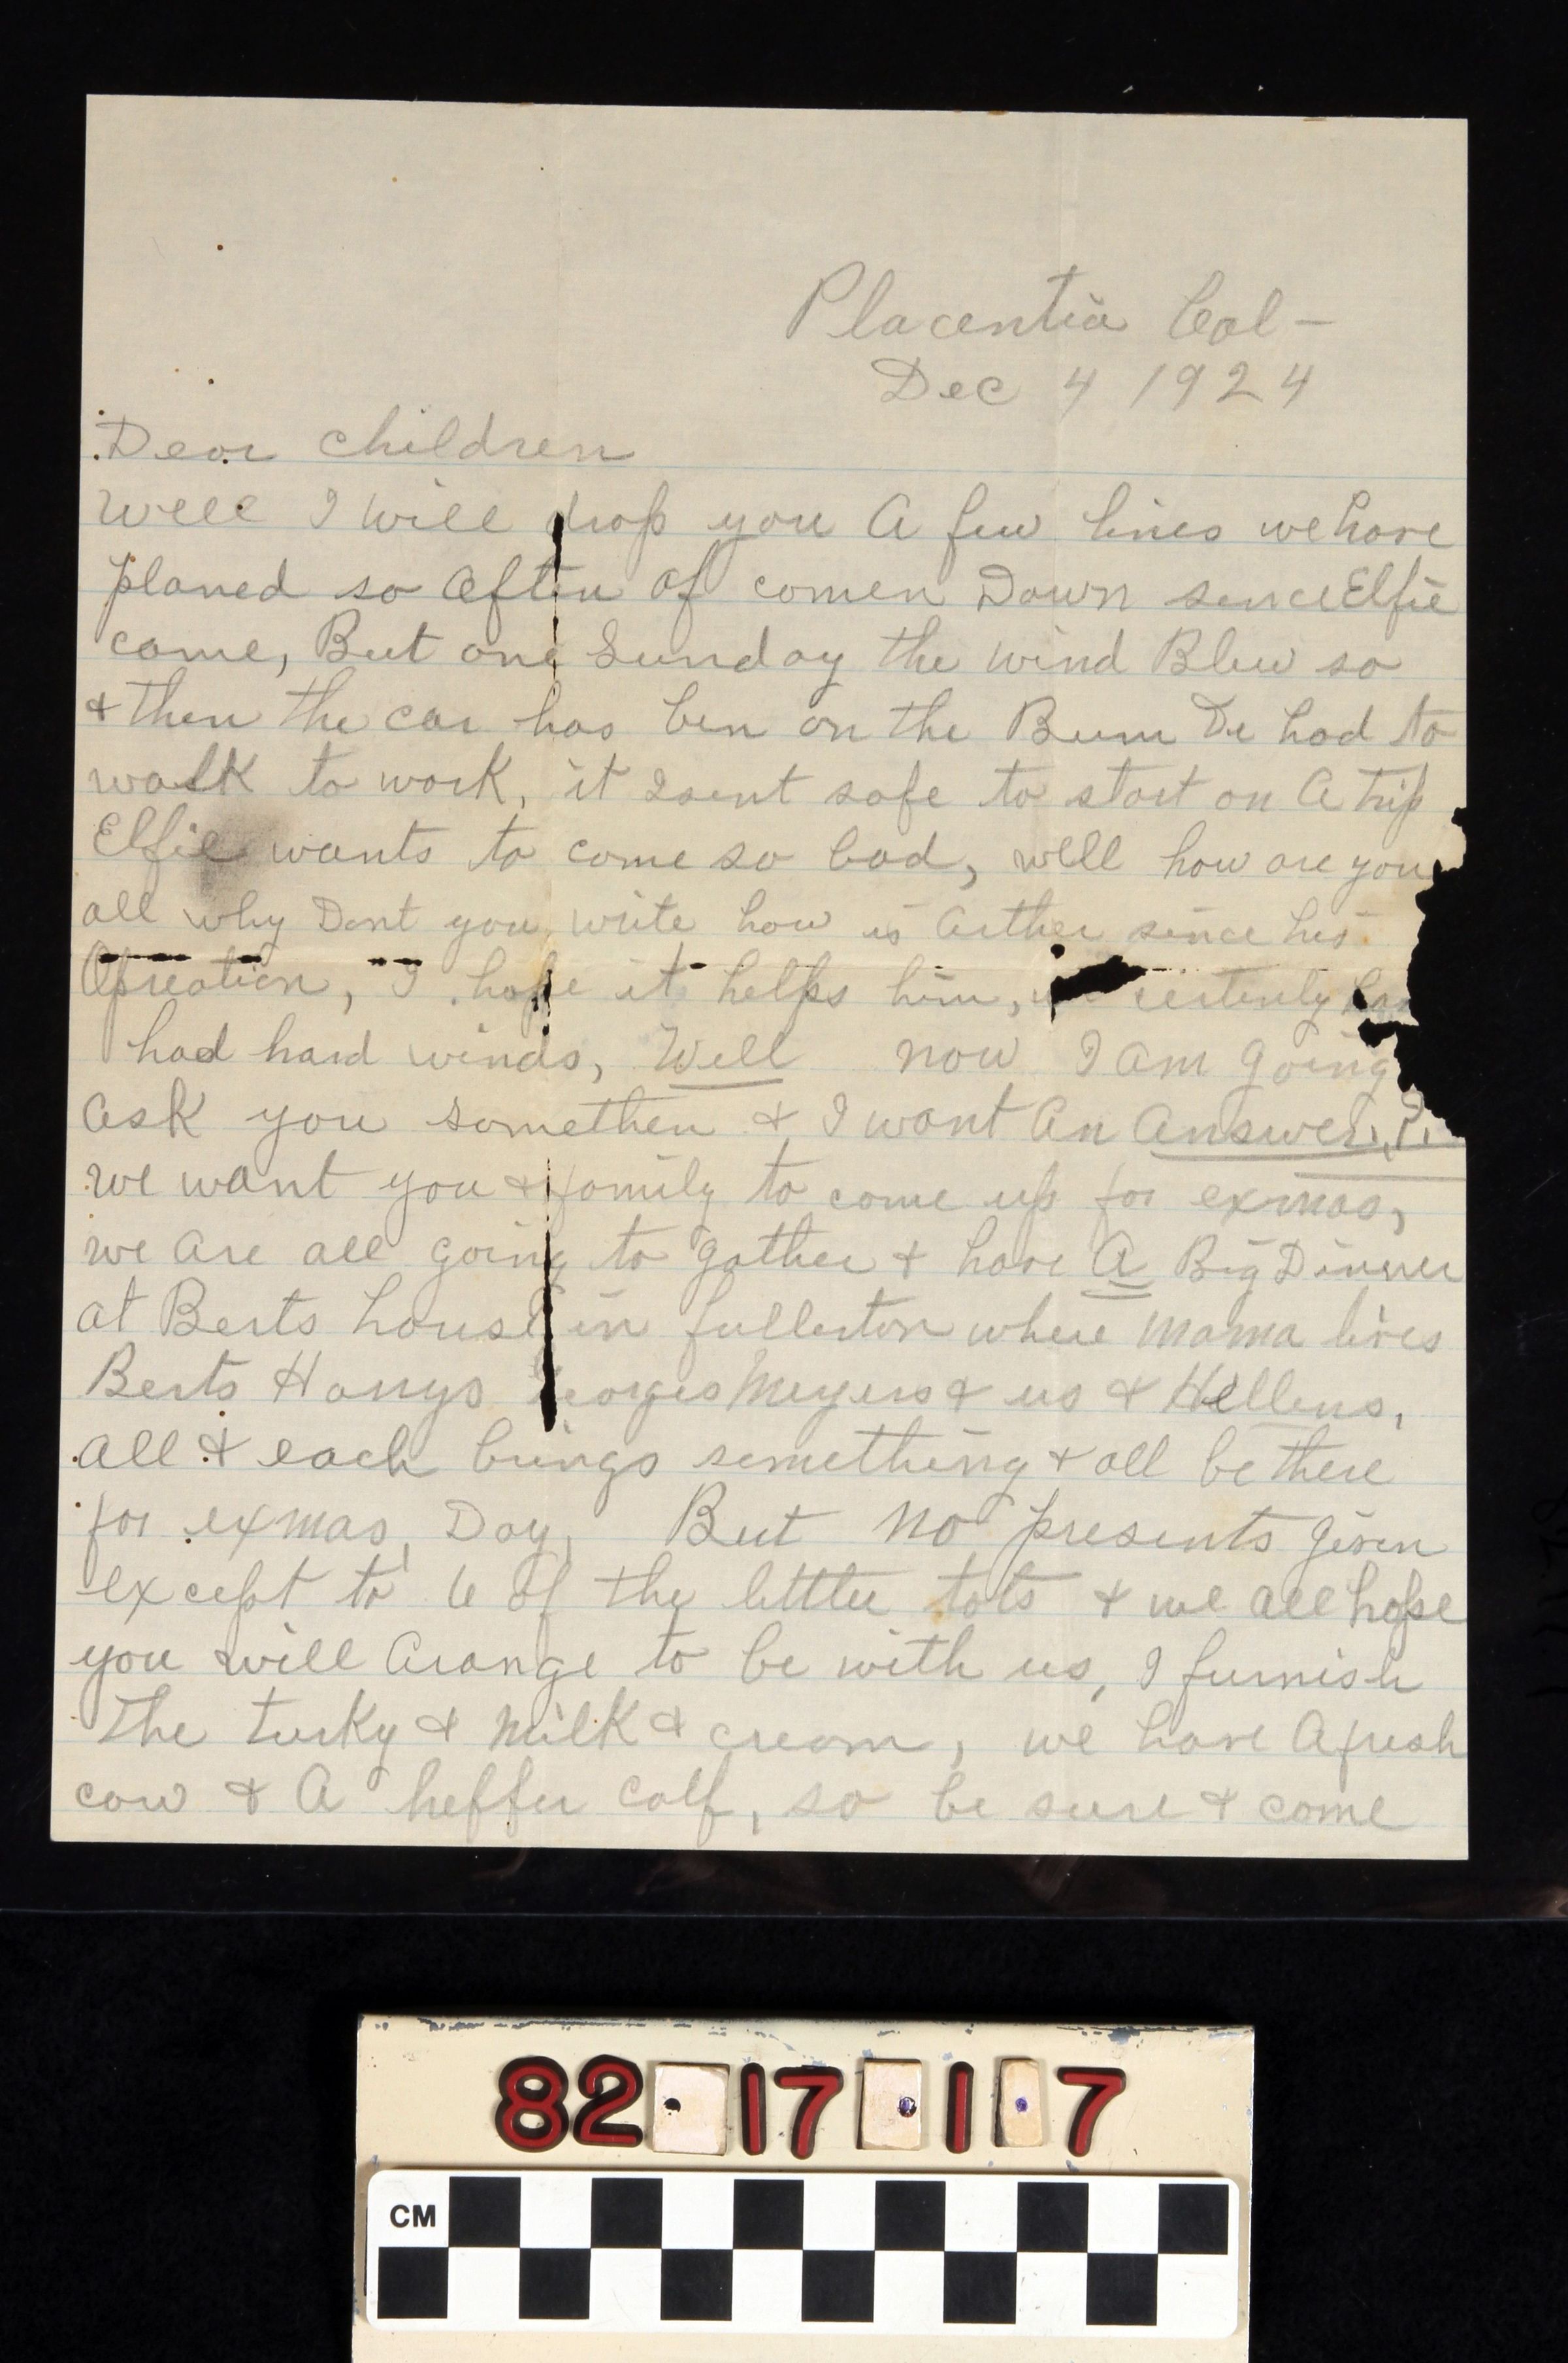 Placentia Cal -
Dec 4 1924
Dear children
Well I will drop you A few lines we have
planed so often of comen Down sence Elfie
came, But one Sunday the wind Blew so
& then the car has ben on the Bum De had to
walk to work, it Isent safe to start on A trip
Elfie wants to come so bad, well how are you
all why Dont you write how is Arther since his
Opreation, I hope it helps him, certenly
had hard winds, Well now I am going
ask you somethen & I want An Answer,
we want you & family to come up for exmas,
we are all going to gather & have A Big Dinner
at Berts house in fullerton where mama lives
Berts Harrys Georges Meyers & us & Hellens,
all & each brings something & all be there
for exmas Day, But no presents given
except to 6 of the little tots & we all hope
you will Arange to be with us, I furnish
the turky & milk & cream, we have A fresh
cow & A heffer calf, so be sure & come
82 17 1 7
CM